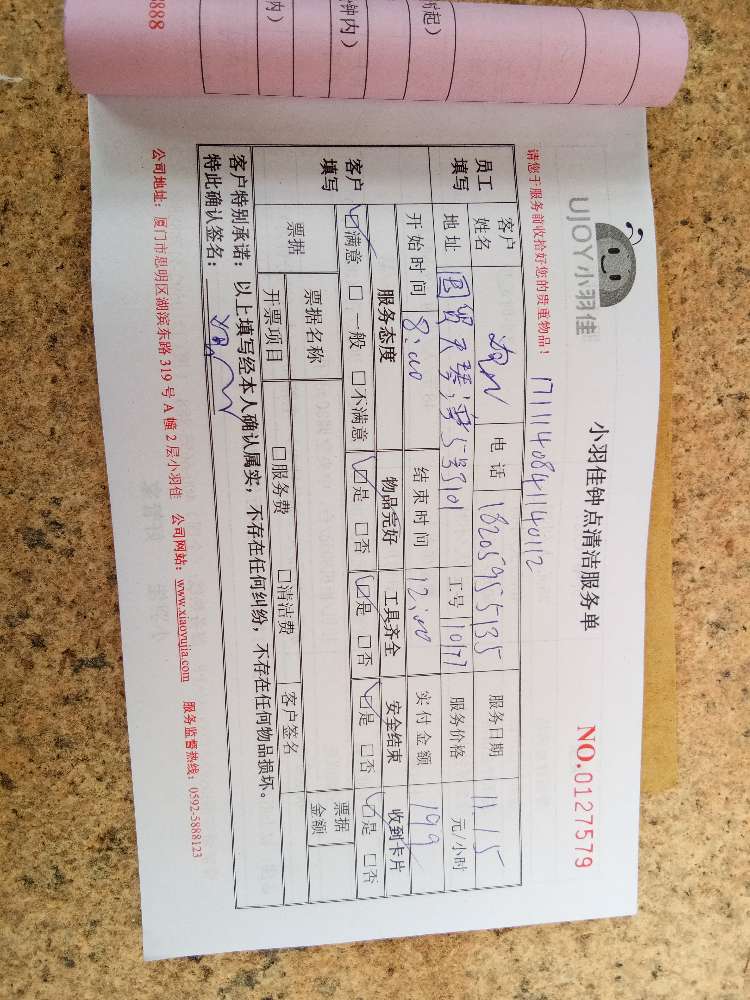 8888
钟内）
内）
UJOY小羽佳
小羽佳钟点清洁服务单
NO.0127579
请您于服务前收拾好您的贵重物品！ 171114084114012
员工填写 客户姓名 电话 18205955135 服务日期 11.15
地址 国贸天琴湾 5号3901 工号 11077 服务价格 元/小时
开始时间 8:00 结束时间 12:00 实付金额 199
客户填写 服务态度 物品完好 工具齐全 安全结束 收到卡片
☑满意 □一般 □不满意 ☑是 □否 ☑是 □否 ☑是 □否 ☑是 □否
票据 票据名称 票据金额
开票项目 □服务费 □清洁费 客户签名
客户特别承诺：以上填写经本人确认属实，不存在任何纠纷，不存在任何物品损坏。
特此确认签名：
公司地址：厦门市思明区湖滨东路 319 号 A 幢 2 层小羽佳 公司网站：www.xiaoyujia.com 服务监督热线：0592-5888123